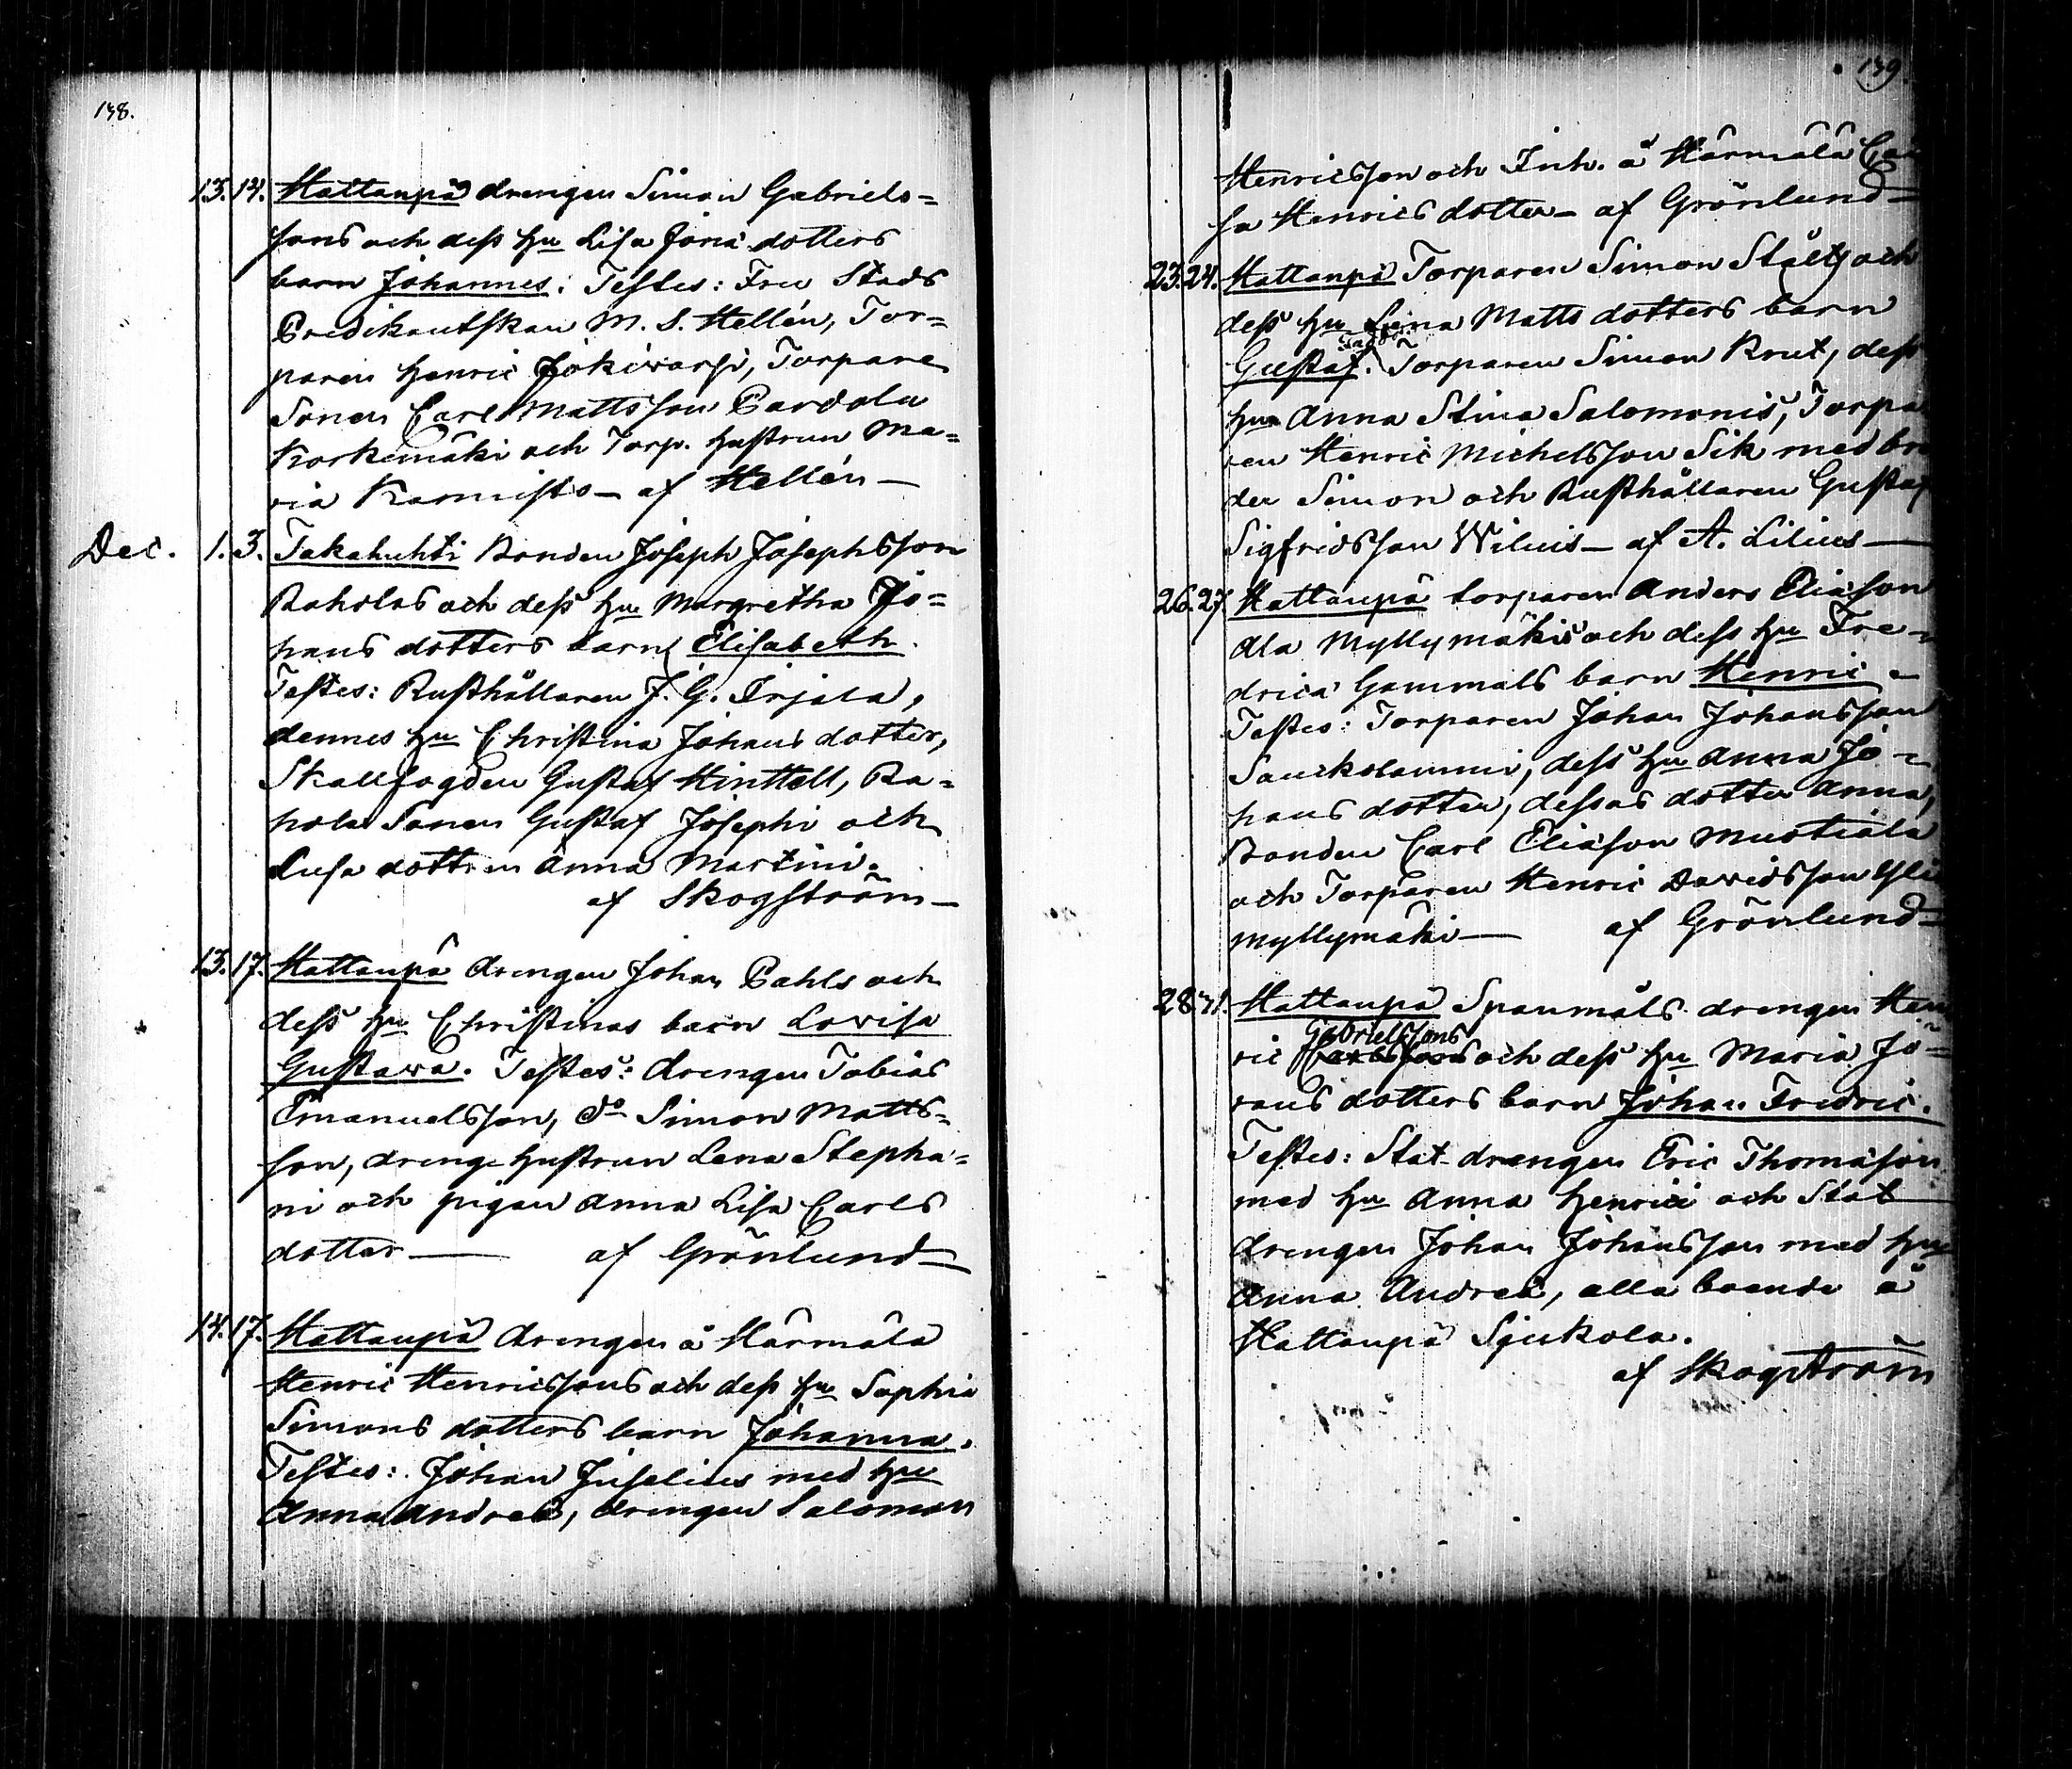 138.
13. 14. Hattanpä drengen Simon Gabriels=
sons och dess hu Lisa Jona dotters
barn Johannes. Testes: Fru Stads
Predikantskan M. S. Hellén, Tor=
paren Henric Jokivarsi, Torpare
Sonen Carl Mattsson Pardola
Korkemäki och Torp. hustrun Ma=
ria Karnisto — af Hellén —
Dec. 1. 3. Takahuhti Bonden Joseph Josephsson
Raholas och dess hu Margretha Jo=
hans dotters barn Elisabeth.
Testes: Rusthållaren J. G. Irjala,
dennes hu Christina Johans dotter,
Skallfogden Gustaf Hinttell, Ra=
hola Sonen Gustaf Josephi och
Lusa dottren Anna Martini.
af Skogström —
13. 17. Hattanpä drengen Johan Pahls och
dess hu Christinas barn Lovisa
Gustava. Testes: drengen Tobias
Emanuelsson, do Simon Matts=
son, dreng hustrun Lena Stepha=
ni och pigan Anna Lisa Carls
dotter — af Grönlund —
14. 17. Hattanpä drengen å Härmälä
Henric Henricssons och dess hu Sophia
Simons dotters barn Johanna.
Testes: Johan Juselius med hu
Anna Andreæ, drengen Salomon
139.
Henricsson och Inh. å Härmälä
sa Henrics dotter — af Grönlund —
23. 24. Hattanpä Torparen Simon Ståltz och
dess hu Lena Matts dotters barn
Gustaf. Torparen Simon Krut, dess
hu Anna Stina Salomonis, Torpa
ren Henric Michelsson Sik med bro
der Simon och Rusthållaren Gustaf
Sigfridsson Wilnis — af A. Lilius —
26. 27. Hattanpä torparen Anders Eliasson
Ala Myllymäkis och dess hu Fre=
drica Gammals barn Henric
Testes: Torparen Johan Johansson
Sauckolammi, dess hu Anna Jo=
hans dotter, dessas dotter Anna,
Bonden Carl Eliasson Mustiala
och Torparen Henric Davidsson Yli
myllymäki — af Grönlund —
28. 31. Hattanpä Spanmåls drengen Hen
ric Gabrielssons och dess hu Maria Jo=
rans dotters barn Johan Fredric.
Testes: Stat drengen Eric Thomasson
med hu Anna Henrici och Stat
drengen Johan Johansson med hu
Anna Andreæ, alla boende å
Hattanpä Sjukola.
af Skogström